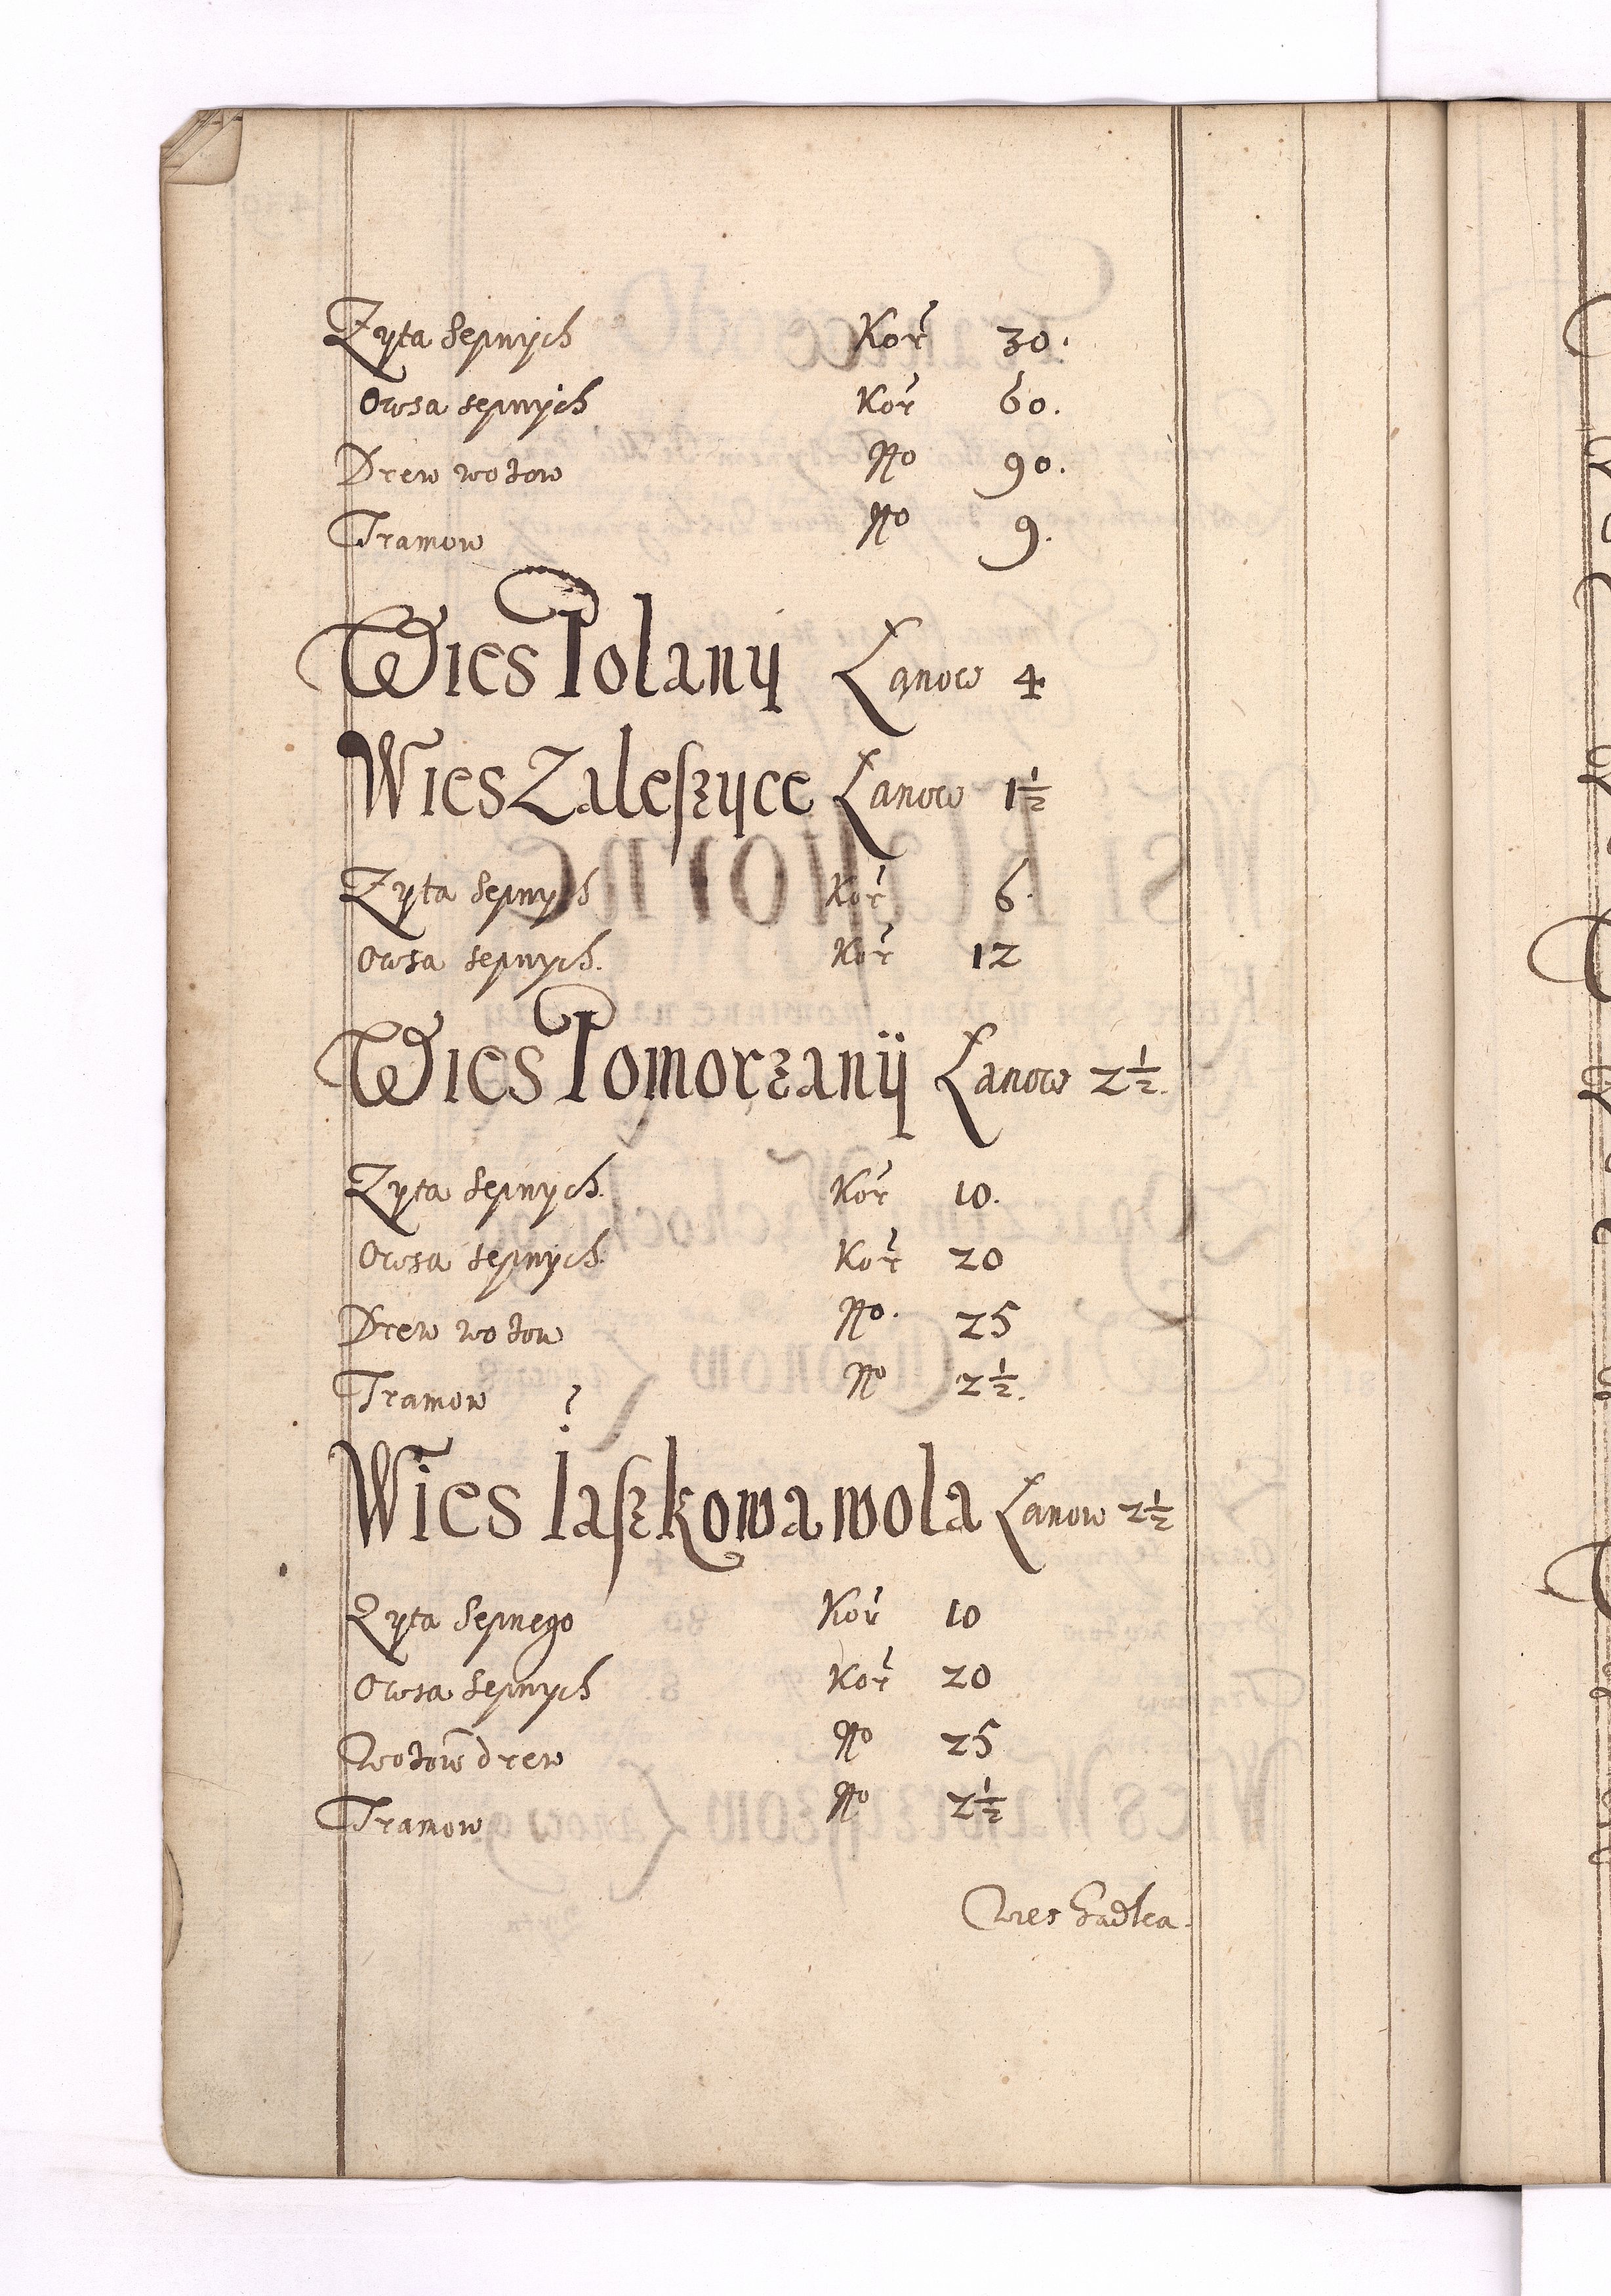 Zyta sepnych Kor 30.
Owsa sepnych Kor 60.
Drew wozow No 90.
Tramow No 9.
Wies Polany Łanow 4
Wies Zaleszyce Łanow 1½
Zyta sepnych Kor 6.
Owsa sepnych. Kor 12
Wies Pomorzanÿ Łanow 2½.
Zyta sepnych. Kor 10.
Owsa sepnych. Kor 20
Drew wozow No. 25
Tramow No 2½.
Wies Iaszkowa wola Łanow 2½
Zyta sepnego Kor 10
Owsa sepnych Kor 20
Wozow drew No 25
Tramow No 2½
Wies Gadka.